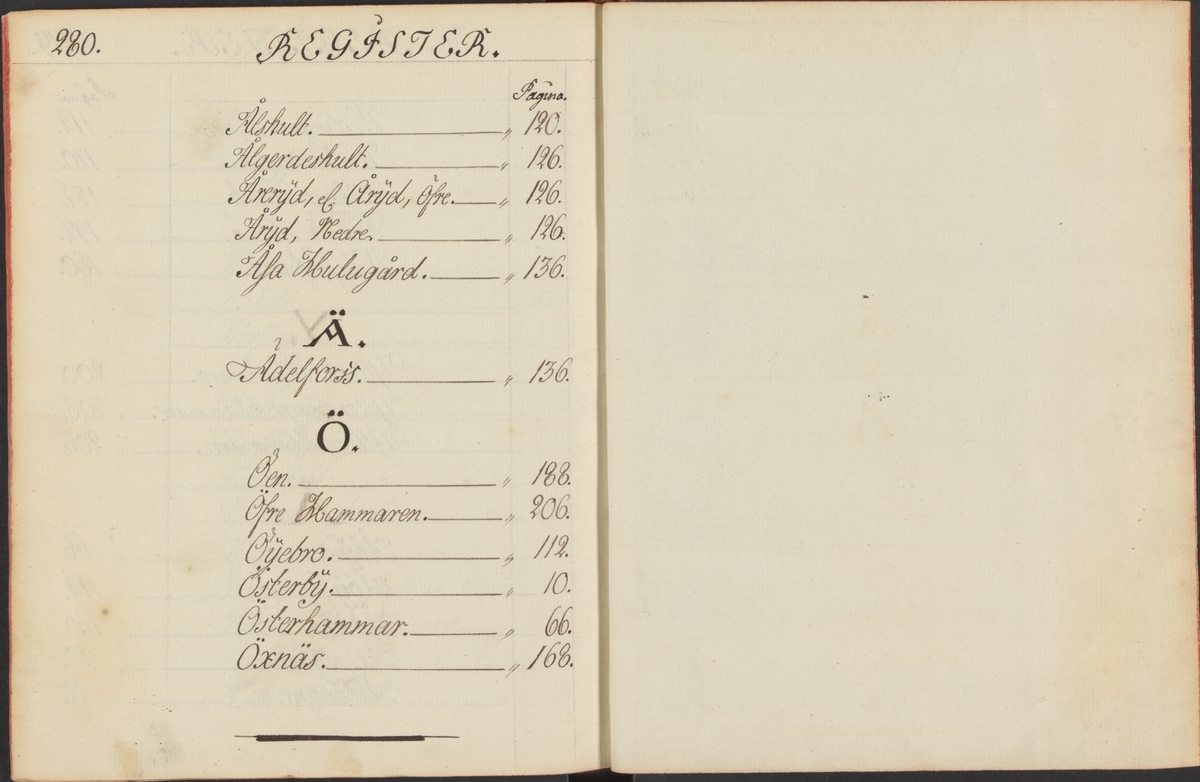 280.
REGISTER.
Pagina.
Ålshult. „ 120.
Ålgerdeshult. „ 126.
Åreryd, el. Åryd, Öfre. „ 126.
Åryd, Nedre. „ 126.
Åsa Hulugård. „ 136.
Ä.
Ädelforss. „ 136.
Ö.
Öen. „ 188.
Öfre Hammaren. „ 206.
Öÿebro. „ 112.
Österbÿ. „ 10.
Österhammar. „ 66.
Öxnäs. „ 168.